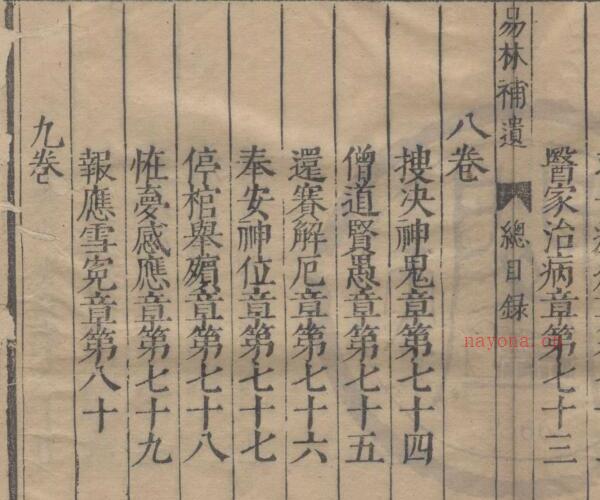 醫家治病章第七十三
易林補遺 總目録
八卷
搜决神鬼章第七十四
僧道賢愚章第七十五
還賽解厄章第七十六
奉安神位章第七十七
停棺舉殯章第七十八
恠憂感應章第七十九
報應雪寃章第八十
九卷
nayona.cn